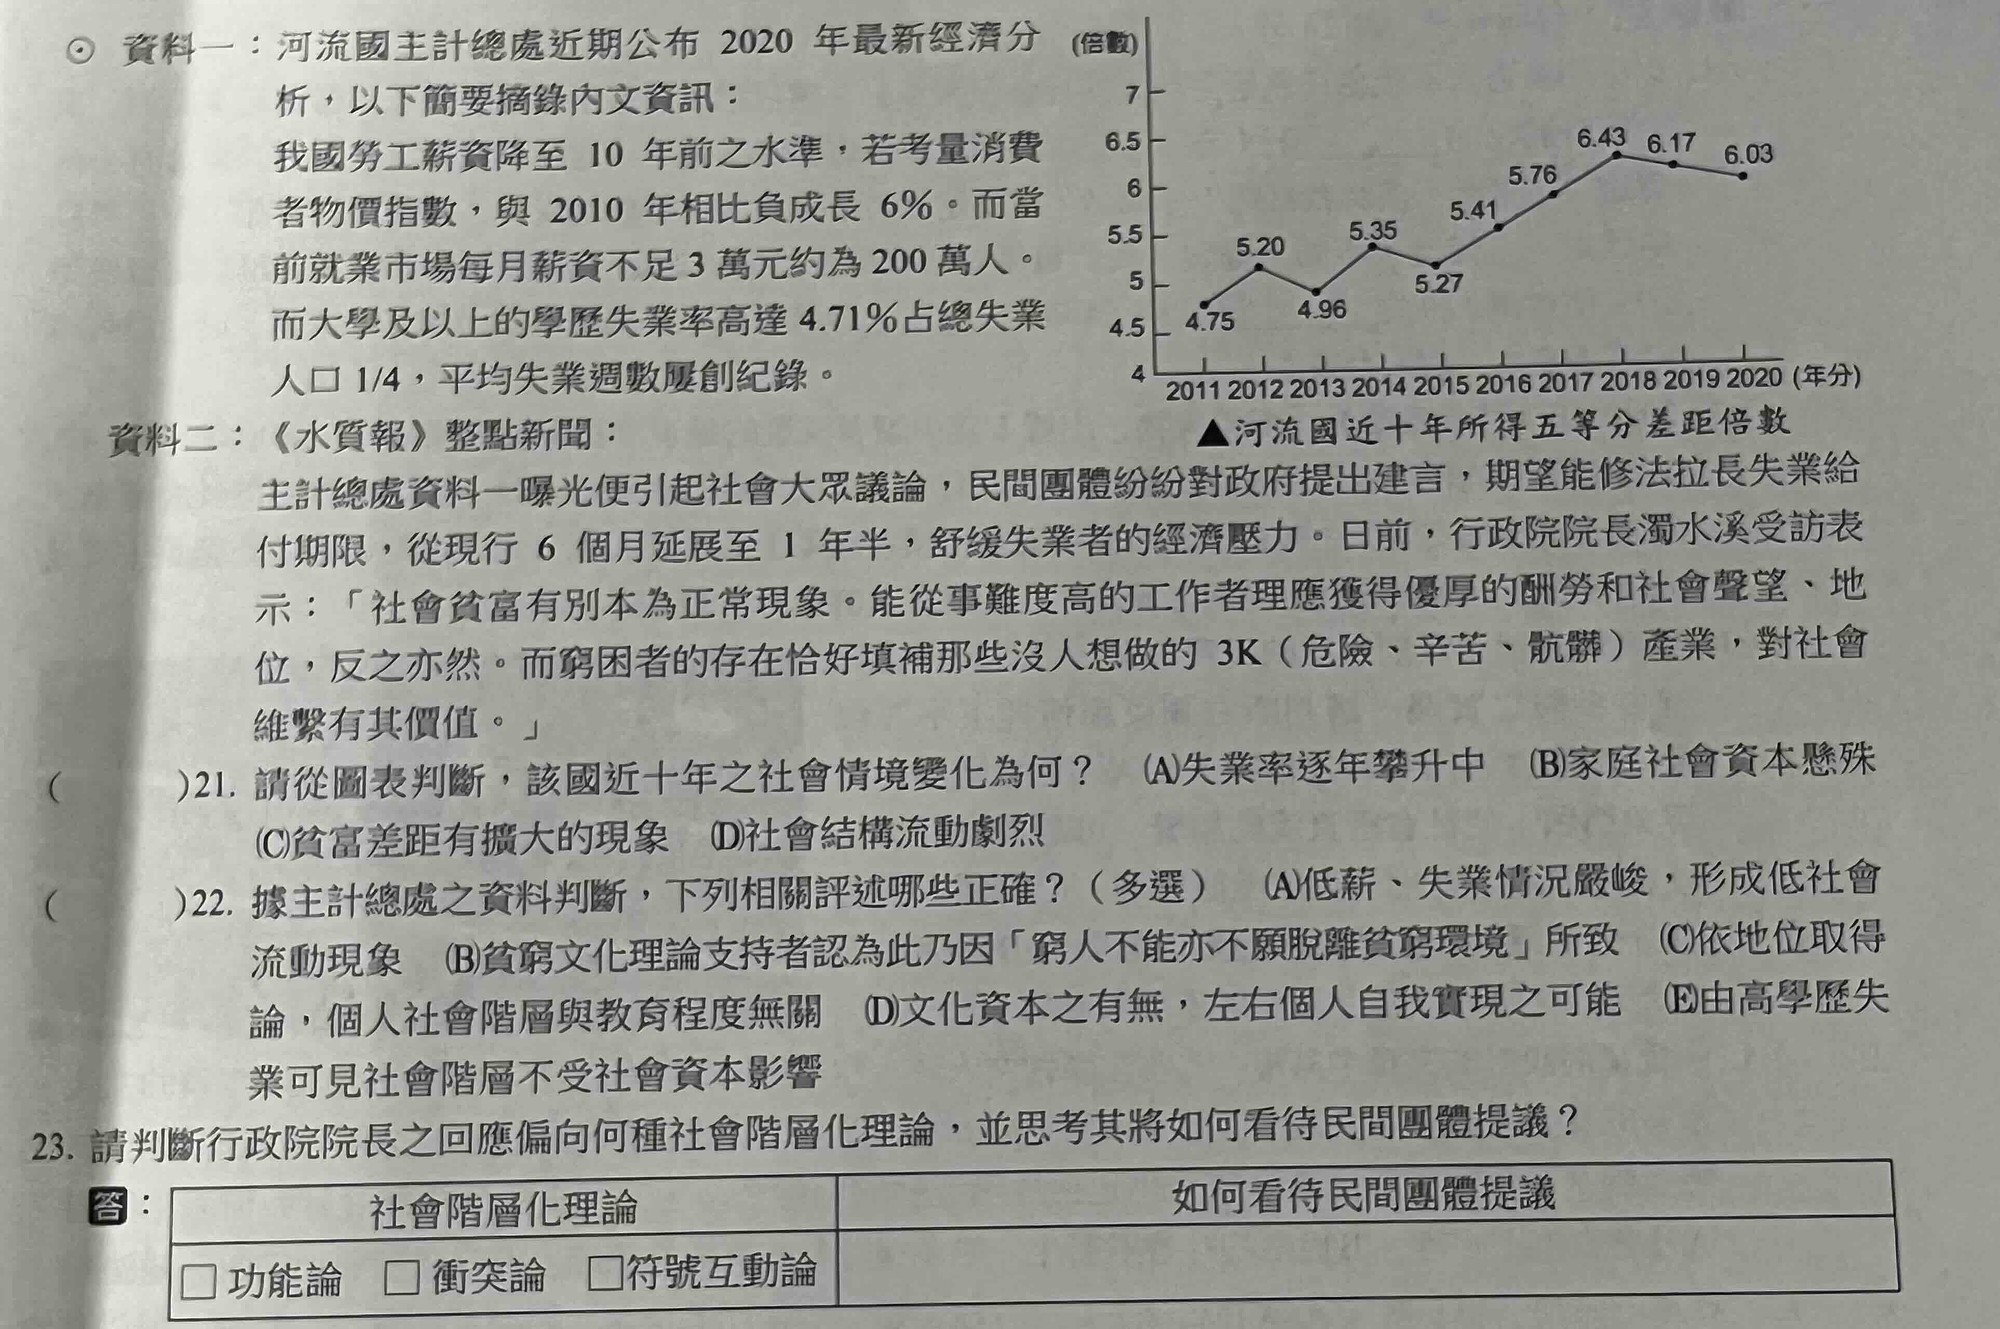 ⊙ 資料一：河流國主計總處近期公布 2020 年最新經濟分
析，以下簡要摘錄內文資訊：
我國勞工薪資降至 10 年前之水準，若考量消費
者物價指數，與 2010 年相比負成長 6%。而當
前就業市場每月薪資不足 3 萬元約為 200 萬人。
而大學及以上的學歷失業率高達 4.71%占總失業
人口 1/4，平均失業週數屢創紀錄。
(倍數)
7
6.5
6
5.5
5
4.5
4
4.75
5.20
4.96
5.35
5.27
5.41
5.76
6.43
6.17
6.03
2011 2012 2013 2014 2015 2016 2017 2018 2019 2020 (年分)
▲河流國近十年所得五等分差距倍數
資料二：《水質報》整點新聞：
主計總處資料一曝光便引起社會大眾議論，民間團體紛紛對政府提出建言，期望能修法拉長失業給
付期限，從現行 6 個月延展至 1 年半，舒緩失業者的經濟壓力。日前，行政院院長濁水溪受訪表
示：「社會貧富有別本為正常現象。能從事難度高的工作者理應獲得優厚的酬勞和社會聲望、地
位，反之亦然。而窮困者的存在恰好填補那些沒人想做的 3K（危險、辛苦、骯髒）產業，對社會
維繫有其價值。」
(　　)21. 請從圖表判斷，該國近十年之社會情境變化為何？　(A)失業率逐年攀升中　(B)家庭社會資本懸殊
(C)貧富差距有擴大的現象　(D)社會結構流動劇烈
(　　)22. 據主計總處之資料判斷，下列相關評述哪些正確？（多選）　(A)低薪、失業情況嚴峻，形成低社會
流動現象　(B)貧窮文化理論支持者認為此乃因「窮人不能亦不願脫離貧窮環境」所致　(C)依地位取得
論，個人社會階層與教育程度無關　(D)文化資本之有無，左右個人自我實現之可能　(E)由高學歷失
業可見社會階層不受社會資本影響
23. 請判斷行政院院長之回應偏向何種社會階層化理論，並思考其將如何看待民間團體提議？
答：
社會階層化理論　如何看待民間團體提議
□ 功能論　□ 衝突論　□符號互動論